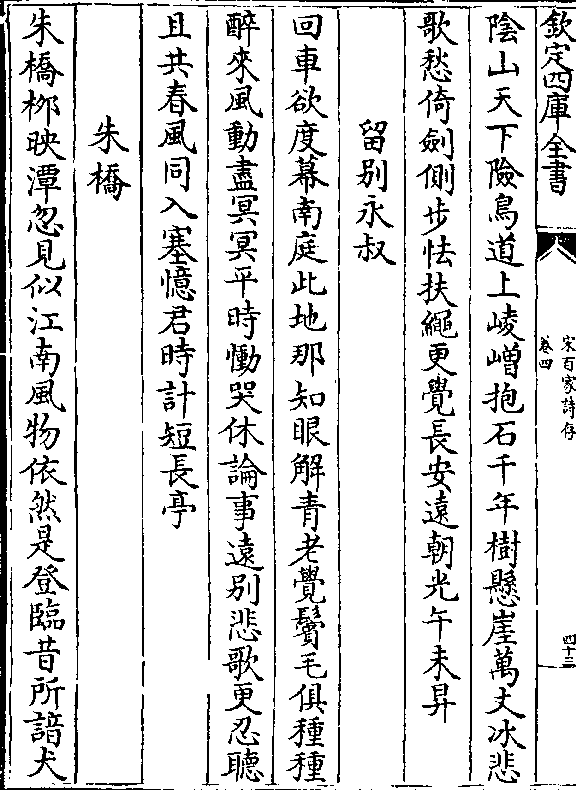 欽定四庫全書
宋百家詩存
卷四
四十三
陰山天下險鳥道上崚嶒抱石千年樹懸崖萬丈冰悲
歌愁倚劍側步怯扶繩更覺長安遠朝光午未昇
留別永叔
回車欲度幕南庭此地那知眼解青老覺鬢毛俱種種
醉來風動盡冥冥平時慟哭休論事遠別悲歌更忍聽
且共春風同入塞憶君時計短長亭
朱橋
朱橋栁映潭忽見似江南風物依然是登臨昔所諳犬